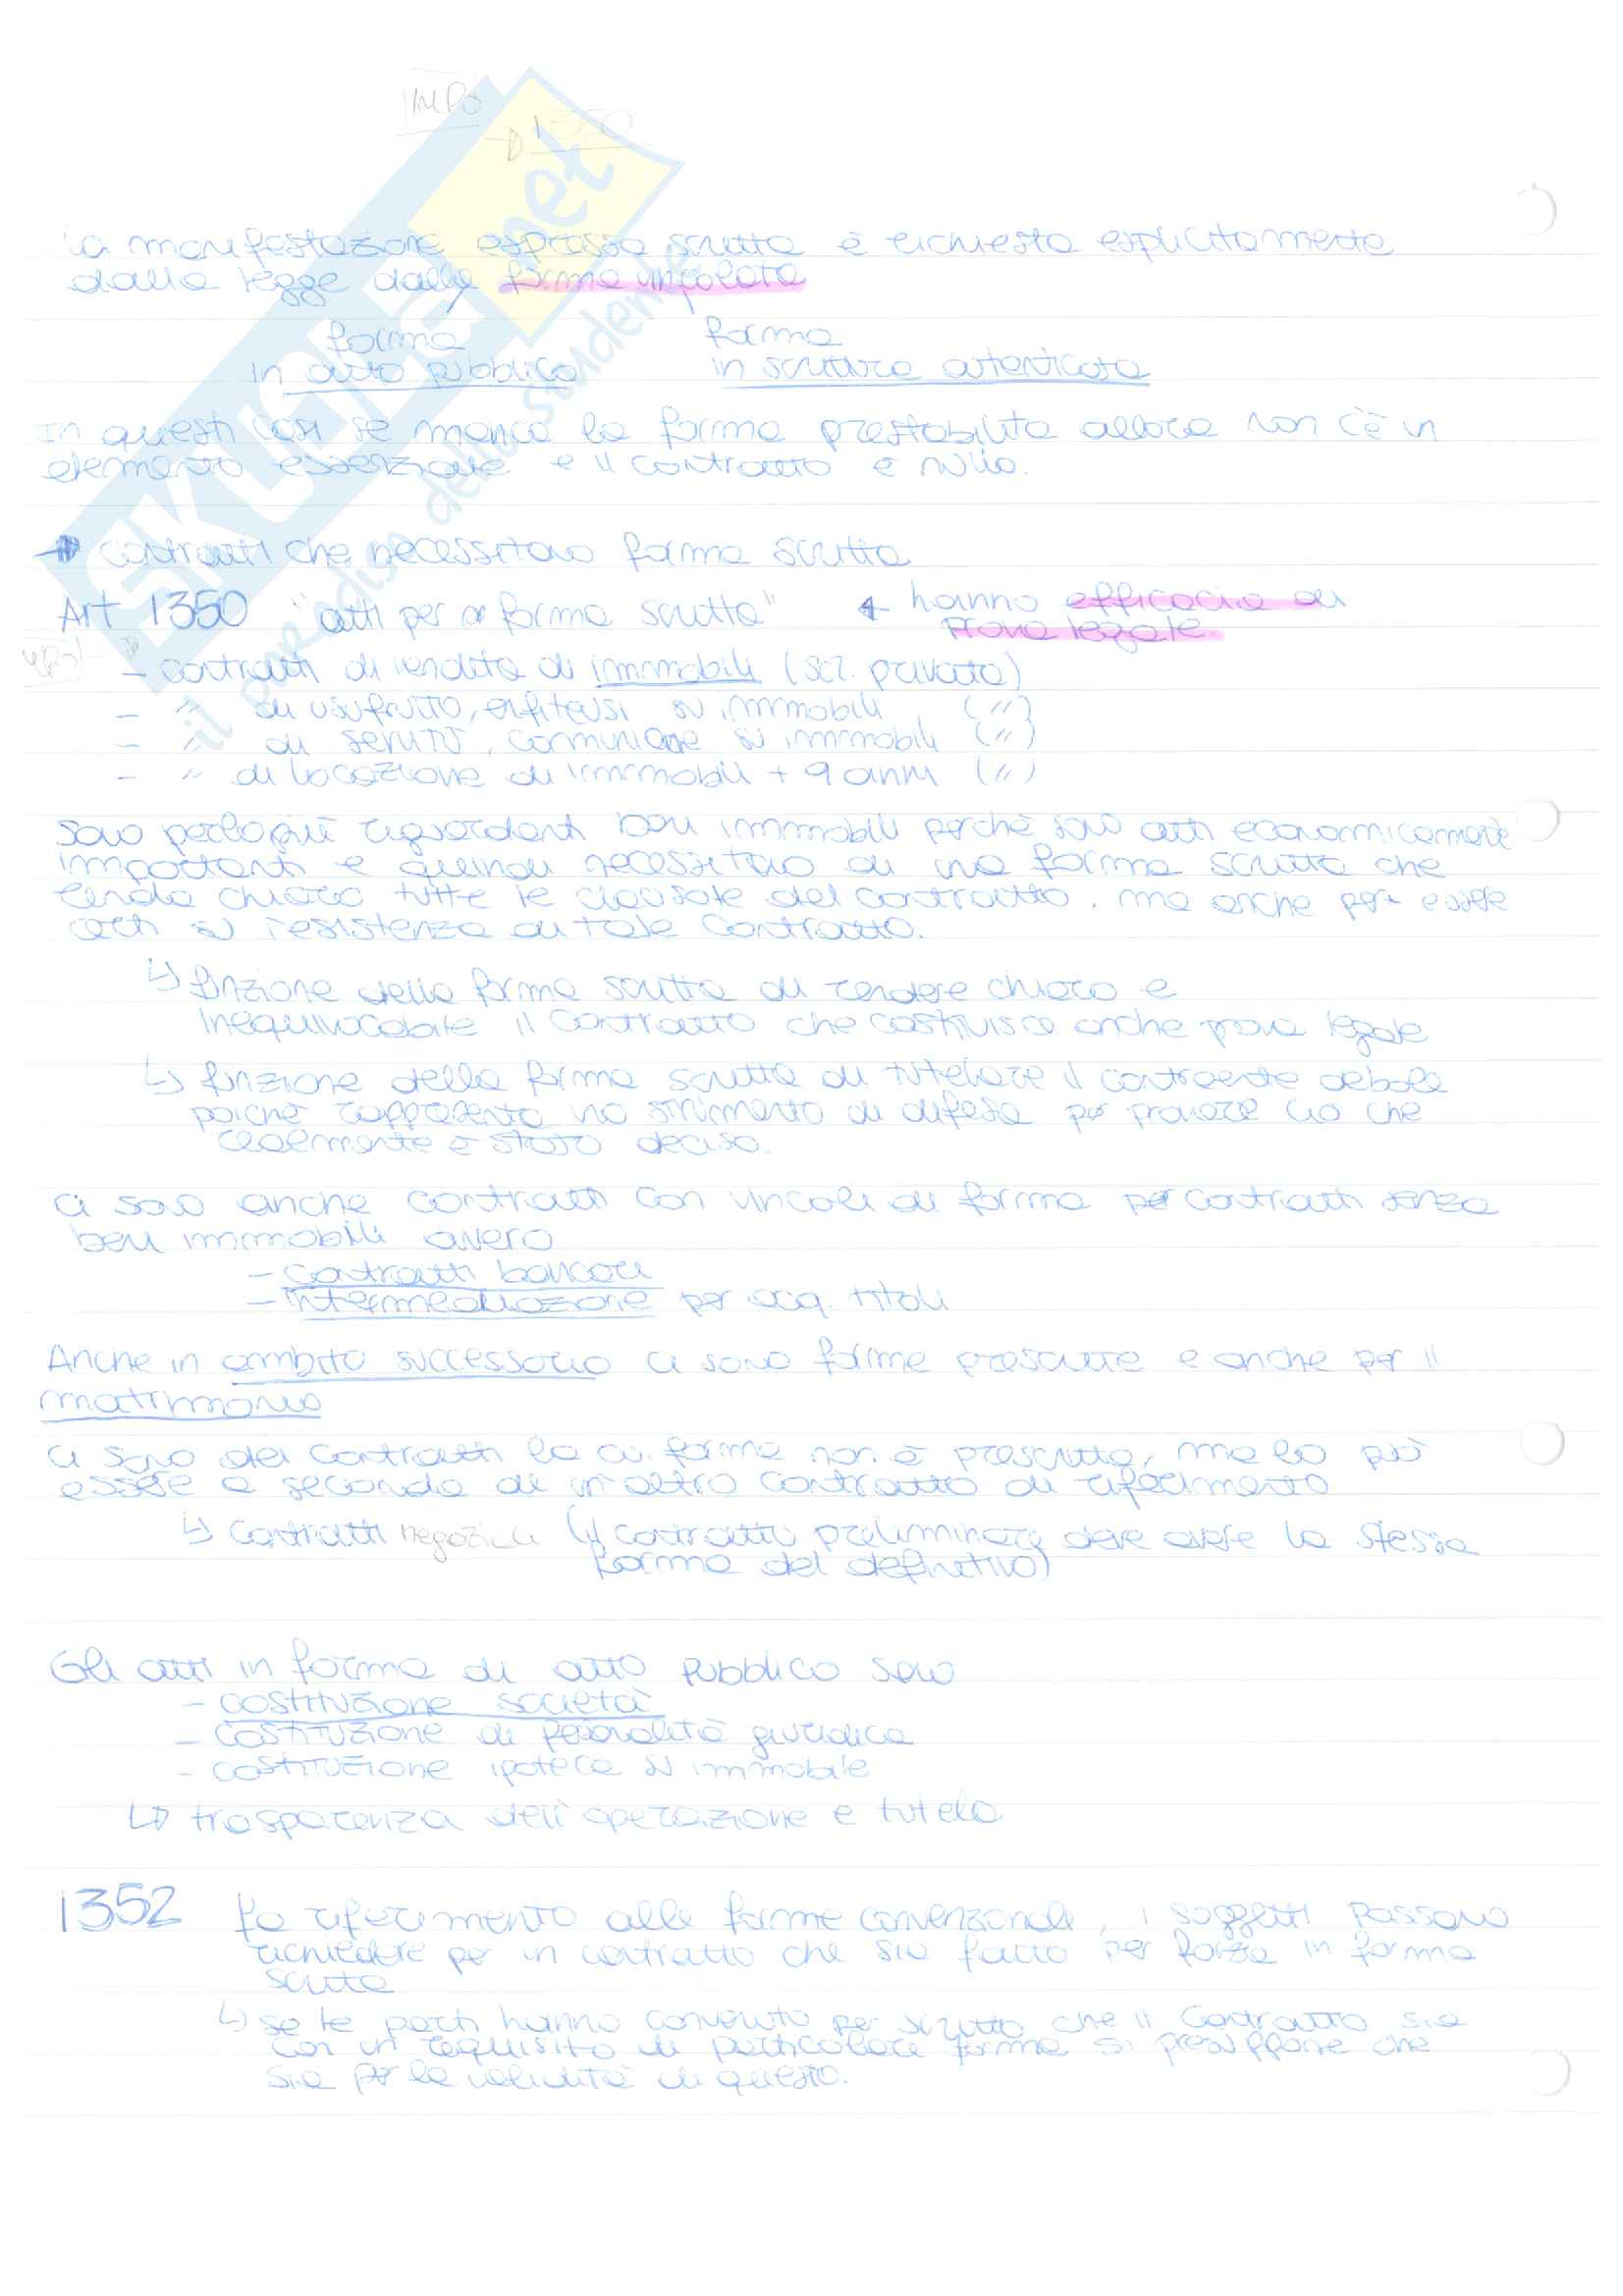 IMPO
→ 1350
SKUOLA.net
il paradiso dello studente
La manifestazione espressa scritta è richiesta esplicitamente
dalla legge dalla forma vincolata
forma forma
in atto pubblico in scrittura autenticata
In questi casi se manca la forma prestabilita allora non c'è un
elemento essenziale e il contratto è nullo.
→ contratti che necessitano forma scritta
Art 1350 "atti per forma scritta" ← hanno efficacia di
prova legale.
IMPO →
- contratti di vendita di immobili (scr. privata)
- " di usufrutto, enfiteusi su immobili (")
- " di servitù, comunione su immobili (")
- " di locazione di immobili + 9 anni (")
Sono perlopiù riguardanti beni immobili perché sono atti economicamente
importanti e quindi necessitano di una forma scritta che
renda chiaro tutte le clausole del contratto, ma anche per essere
certi su l'esistenza di tale contratto.
↳ funzione della forma scritta di rendere chiaro e
inequivocabile il contratto che costituisce anche prova legale
↳ funzione della forma scritta di tutelare il contraente debole
poiché rappresenta uno strumento di difesa per provare ciò che
realmente è stato deciso.
Ci sono anche contratti con vincoli di forma per contratti senza
beni immobili ovvero
- contratti bancari
- intermediazione per acq. titoli
Anche in ambito successorio ci sono forme prescritte e anche per il
matrimonio
Ci sono dei contratti la cui forma non è prescritta, ma lo può
essere a seconda di un altro contratto di riferimento
↳ contratti negoziali (il contratto preliminare deve avere la stessa
forma del definitivo)
Gli atti in forma di atto pubblico sono
- costituzione società
- costituzione di personalità giuridica
- costituzione ipoteca su immobile
↳ trasparenza dell'operazione e tutela
1352 fa riferimento alle forme convenzionali, i soggetti possono
richiedere per un contratto che sia fatto per forza in forma
scritta
↳ se le parti hanno convenuto per scritto che il contratto sia
con un requisito di particolare forma si presuppone che
sia per la validità di questo.